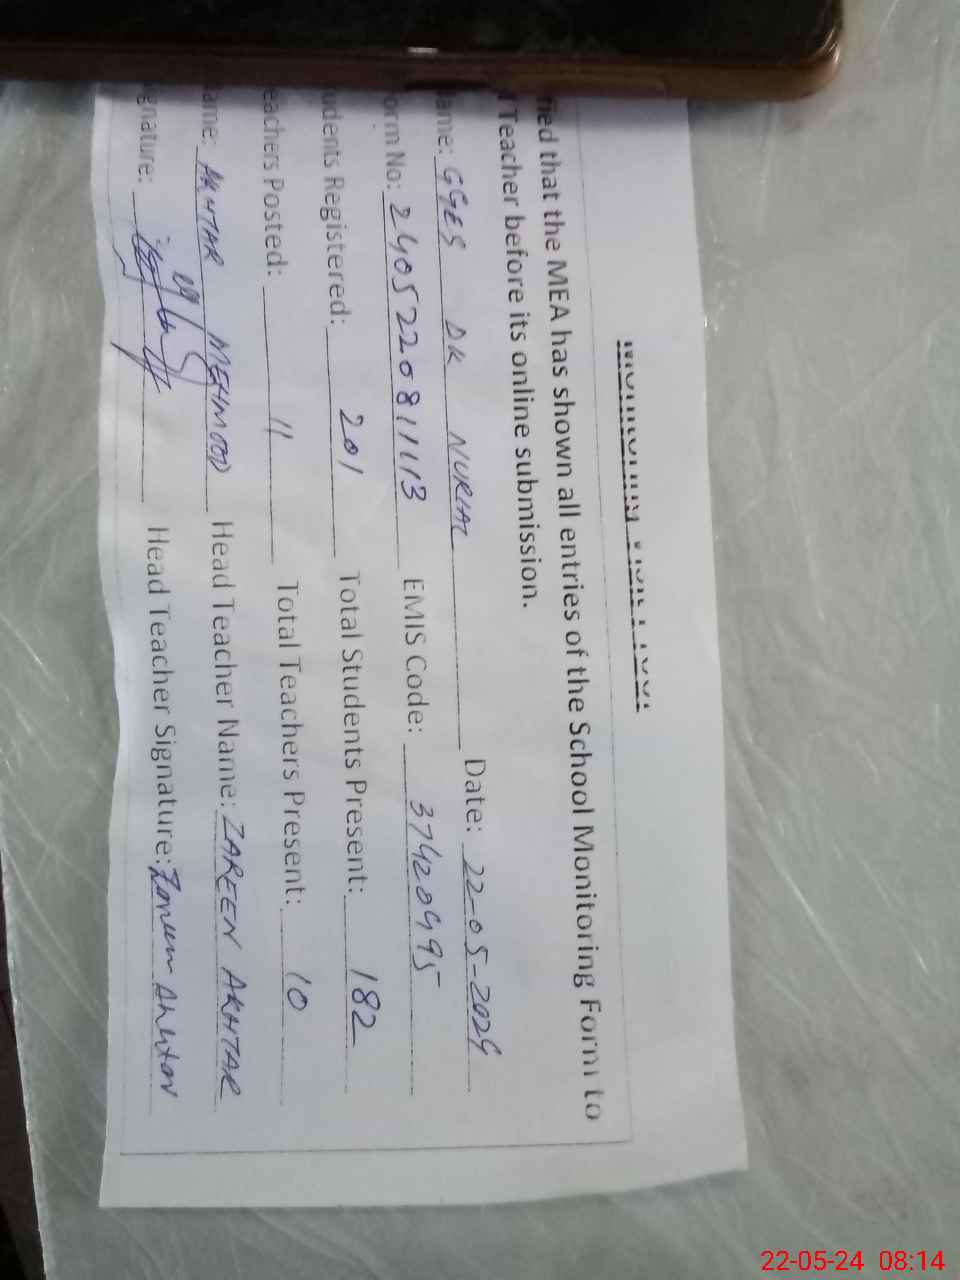 Monitoring Visit Proof
fied that the MEA has shown all entries of the School Monitoring Form to
Teacher before its online submission.
ame: GGES DK NURIAL Date: 22-05-2024
orm No: 240522081113 EMIS Code: 37420495
udents Registered: 201 Total Students Present: 182
eachers Posted: 11 Total Teachers Present: 10
ame: AKHTAR MEHMOOD Head Teacher Name: ZAREEN AKHTAR
gnature: Head Teacher Signature: Zareen Akhtar
22-05-24 08:14